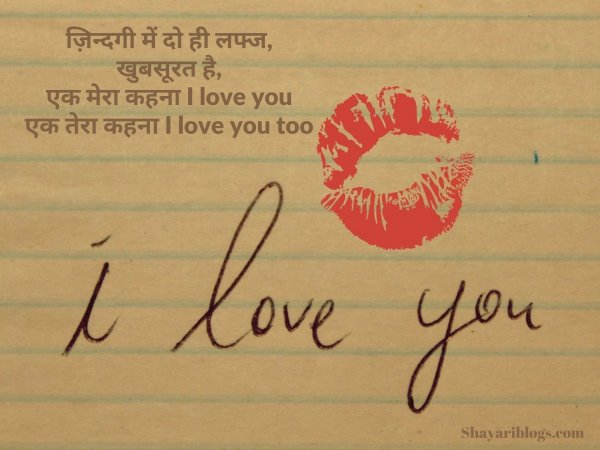 ज़िन्दगी में दो ही लफ्ज,
खुबसूरत है,
एक मेरा कहना I love you
एक तेरा कहना I love you too
i love you
Shayariblogs.com